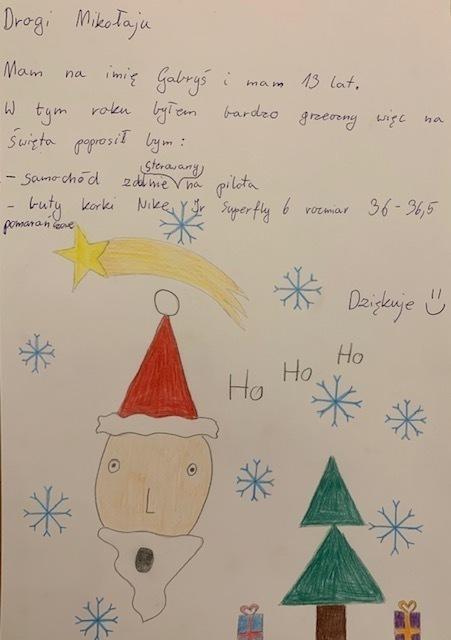 Drogi Mikołaju
Mam na imię Gabryś i mam 13 lat.
W tym roku byłem bardzo grzeczny więc na
święta poprosił bym:
sterowany
- samochód zdalnie na pilota
- buty korki Nike Jr Superfly 6 rozmiar 36-36,5
pomarańczowe
Dziękuje
Ho Ho Ho